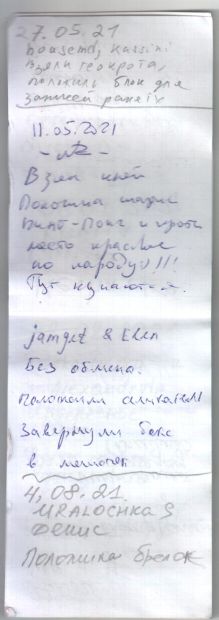 27.05.21
housemd, kassini
Взяли геокрота,
положили блок для
записей
11.05.2021
Взял
Положила шарик
Пинг-Понг и
место красивое
но народу:)!!!
Тут купаются.
jamget & Elen
Без обмена.
Положили
Завернули бокс
в мешочек
4,08.21.
URALOCHKA 9
Денис
Положила брелок